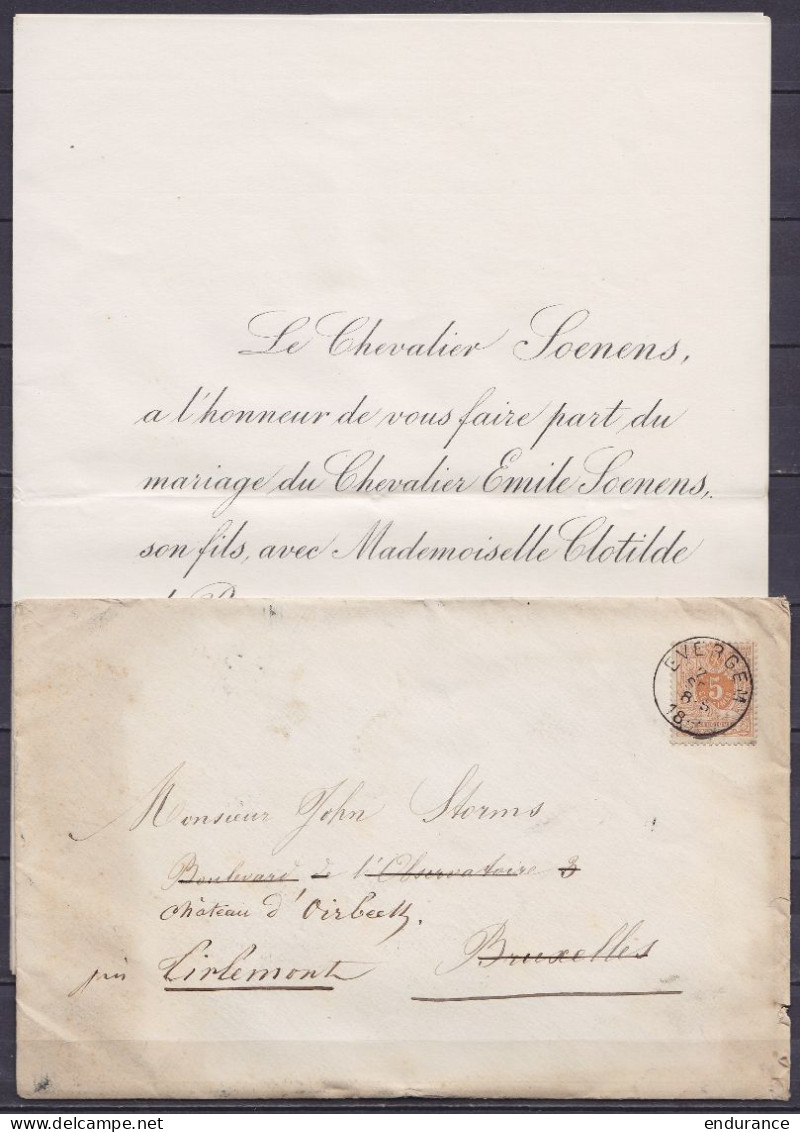 Le Chevalier Soenens,
a l'honneur de vous faire part du
mariage du Chevalier Emile Soenens,
son fils, avec Mademoiselle Clotilde
EVERGEM
5
Monsieur John Storms
Boulevard de l'Observatoire 3
château d'Oirbeek.
Bruxelles
près Tirlemont
delcampe.net
endurance